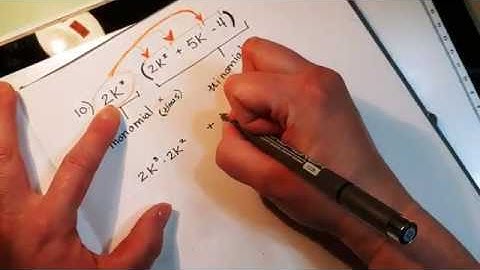 10) 2K³ (2K² + 5K - 4)
monomial × (times) trinomial
2K³ · 2K² +